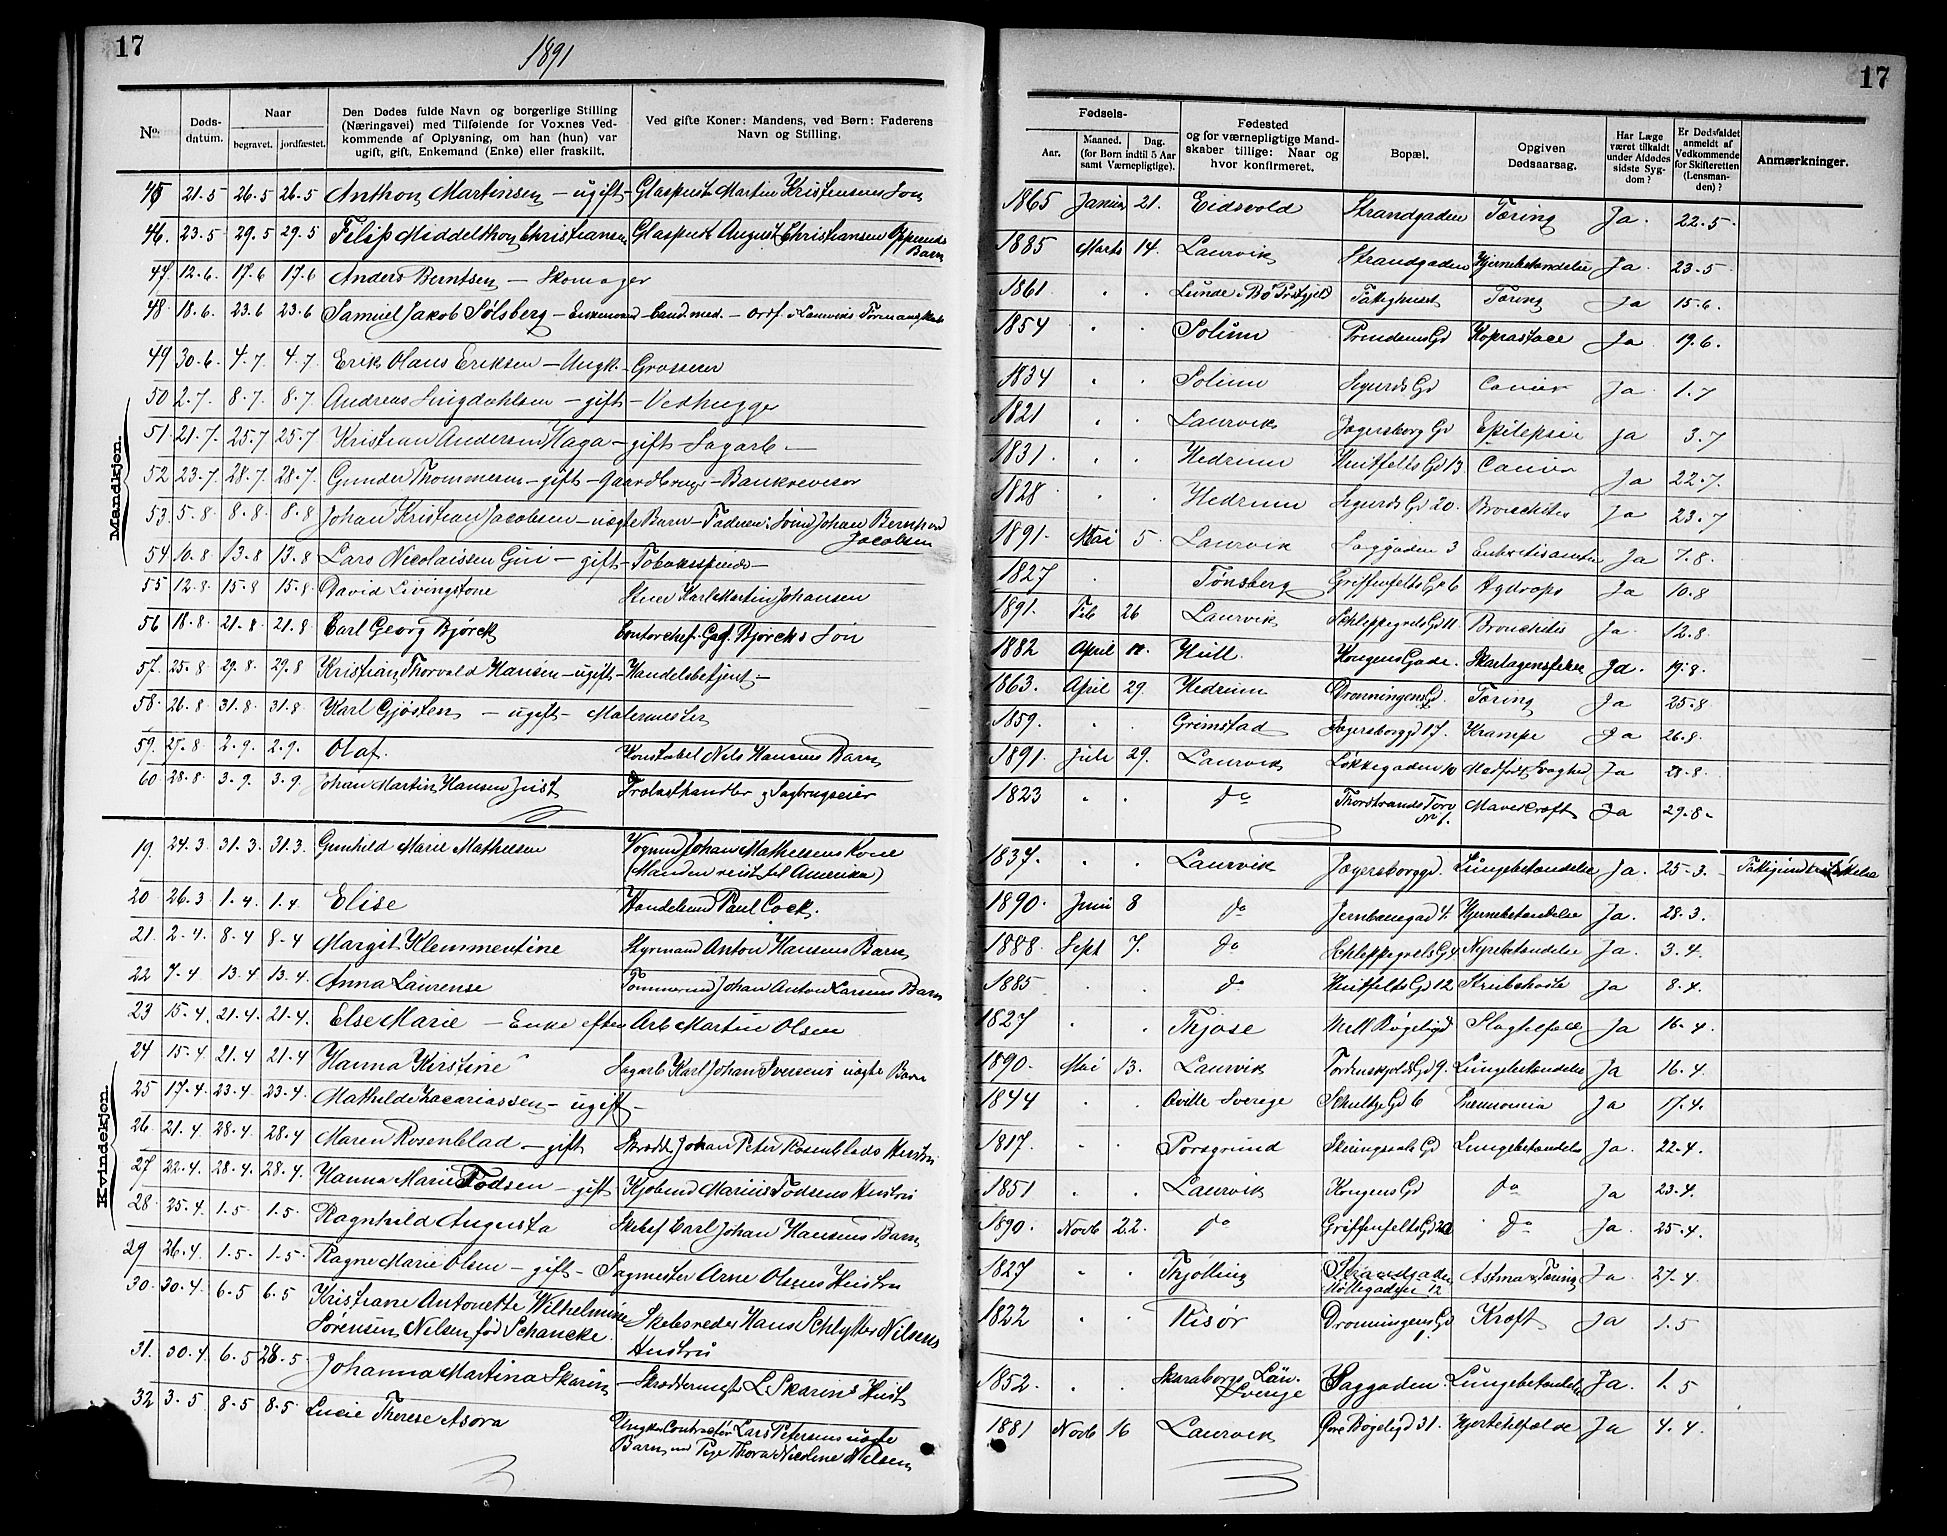 17
1891
17
No.
Døds-
datum.
Naar
begravet. jordfæstet.
Den Dødes fulde Navn og borgerlige Stilling
(Næringsvei) med Tilføiende for Voxnes Ved-
kommende af Oplysning, om han (hun) var
ugift, gift, Enkemand (Enke) eller fraskilt.
Ved gifte Koner: Mandens, ved Børn: Faderens
Navn og Stilling.
Fødsels-
Aar.
Maaned. Dag.
(for Børn indtil 5 Aar
samt Værnepligtige).
Fødested
og for værnepligtige Mand-
skaber tillige: Naar og
hvor konfirmeret.
Bopæl.
Opgiven
Dødsaarsag.
Har Læge
været tilkaldt
under Afdødes
sidste Syg-
dom?
Er Dødsfaldet
anmeldt af
Vedkommende
for Skifteretten
(Lensman-
den)?
Anmærkninger.
Mandkjøn.
45 21.5 26.5 26.5 Anthon Martinsen – ugift – Glaspust Martin Kristensens Søn 1865 Januar 21. Eidsvold Strandgaden Tæring Ja. 22.5
46. 23.5 29.5 29.5 Filip Middelthon Christiansen Glaspust August Christiansen
Barn 1885 Marts 14. Laurvik Strandgaden Hjernebetændelse Ja 23.5
47. 12.6. 17.6 17.6 Anders Berntsen – Skomager 1861 Lunde i Bø Fattighuset Tæring Ja 15.6.
48. 18.6. 23.6 23.6 Samuel Jakob Sølsberg – Enkemand – Cand. med. – 1854 Solum Ja 19.6.
49 30.6. 4.7 4.7. Erik Olaus Eriksen – Ungk. – Grosserer 1834 Solum Sigurds Gd Cancer Ja 1.7
50 2.7. 8.7. 8.7 Andreas – gift – Vedhugger 1821 Laurvik Jegersborg Gd Epilepsie Ja 3.7
51. 21.7. 25.7 25.7 Kristian Andersen Haga – gift – Sagarb. – 1831. Hedrum Huitfelts Gd 13 Cancer Ja 22.7.
52 23.7. 28.7. 28.7. Gunder Thommesen – gift – Gaardbruger – Bankrevisor 1828 Hedrum Sigurds Gd 20. Bronchitis Ja 23.7
53. 5.8. 8.8. 8.8 Johan Kristian Jacobsen – uægte Barn – Faderen: Johan Bernhard
Jacobsen 1891. Mai 5 Laurvik Saggaden 3 Ja 7.8.
54 10.8 13.8 13.8 Lars Nicolaissen Gui – gift – Tobaksspinder – 1827 Tønsberg Griffenfelts Gd 6 Ja 10.8
55 12.8. 15.8 15.8 David Livingstone Karl Martin Johansen 1891. Feb 26 Laurvik Schleppegrels Gd 11. Bronchitis Ja. 12.8.
56 18.8. 21.8 21.8 Carl Georg Bjørck Contorchef Bjørcks Søn 1882 April Hull. Kongens Gade. Skarlagensfeber Ja. 19.8.
57. 25.8 29.8. 29.8 Kristian Thorvald Hansen – ugift – Handelsbetjent – 1863. April 29 Hedrum Dronningens Gd Tæring Ja 25.8
58. 26.8 31.8. 31.8. Karl Gjøsten – ugift – Malermester 1859. Grimstad Jegersborggd 17. Krampe Ja 26.8.
59. 27.8 2.9. 2.9. Olaf. Konstabel Nils Hansens Barn 1891. Juli 29. Laurvik Løkkegaden 10 Medfødt Svaghed Ja 28.8.
60 28.8 3.9. 3.9. Johan Martin Hansen Juist Trælasthandler og Sagbrugseier 1823 do Thorstrands Torv
No 1. Mavekræft Ja 29.8.
Kvindekjøn.
19. 24.3 31.3. 31.3. Gunhild Marie Mathelsen Vognmd Johan Mathelsens Kone
(Manden reist til Amerika) 1837. Laurvik Jægersborggd. Lungebetændelse Ja. 25.3.
20 26.3 1.4. 1.4 Elise Handelsmd Paul Cock. 1890. Juni 8 do Jernbanegad 4. Hjernebetændelse Ja. 28.3.
21. 2.4. 8.4 8.4 Margit Klemmentine Styrmand Anton Hansens Barn 1888. Sept 7. do Schleppegrels Gd 4 Nyrebetændelse Ja. 3.4.
22 7.4 13.4 13.4. Anna Laurense Tømmermd Johan Anton Larsens Barn 1885 do Huitfelts Gd 12 Strubehoste Ja 8.4.
23 15.4. 21.4. 21.4. Else Marie – Enke efter Arb. Martin Olsen 1827 Thjose Mell Bøgeligd Slagtilfælde Ja 16.4.
24 15.4 21.4 21.4 Hanna Kirstine Sagarb Karl Johan Iversens uægte Barn 1890. Mai 13. Laurvik Tordenskjolds Gd 9. Lungebetændelse Ja 16.4.
25 17.4 23.4 23.4. Mathilde Zacariassen – ugift – 1844 Sverige Schultze Gd 6 Pneumonia Ja 17.4.
26. 21.4. 28.4. 28.4 Maren Rosenblad – gift Skrædd. Johan Peter Rosenblads Hustru 1817. Porsgrund Skiringssals Gd Lungebetændelse Ja. 22.4.
27 22.4. 28.4. 28.4. Hanna Marie Todsen – gift Kjøbmd Marius Todsens Hustru 1851 Laurvik Kongens Gd do Ja 23.4.
28. 25.4. 1.5. 1.5. Ragnhild Augusta Skibsf Carl Johan Hansens Barn 1890. Novb 22. do Griffenfelts Gd do Ja. 25.4.
29 26.4. 1.5. 1.5. Ragne Marie Olsen – gift – Sagmester Arne Olsens Hustru 1827 Thjølling Strandgaden
Møllegaden 12 Astma & Tæring Ja. 27.4.
30. 30.4. 6.5 6.5 Kristiane Antonette Wilhelmine
Sørensen Nilsen, fød Schancke. Skibsreder Hans Schlytter Nilsens
Hustru 1822 Risør Dronningens Gd
1. Kræft Ja 1.5
31. 30.4. 6.5 28.5 Johanna Martina Skarin Skræddermestr L. Skarins Hust 1852. Skaraborgs Län.
Sverige Saggaden. Lungebetændelse Ja. 1.5
32 3.5 8.5 8.5 Lucie Therese Asora Ungk. Contractør Lars Petersens uægte
Barn med Pige Thora Nicoline Nilsen 1881 Novb 16 Laurvik Øvre Bøgeligd 31. Hjertetilfælde Ja 4.4.